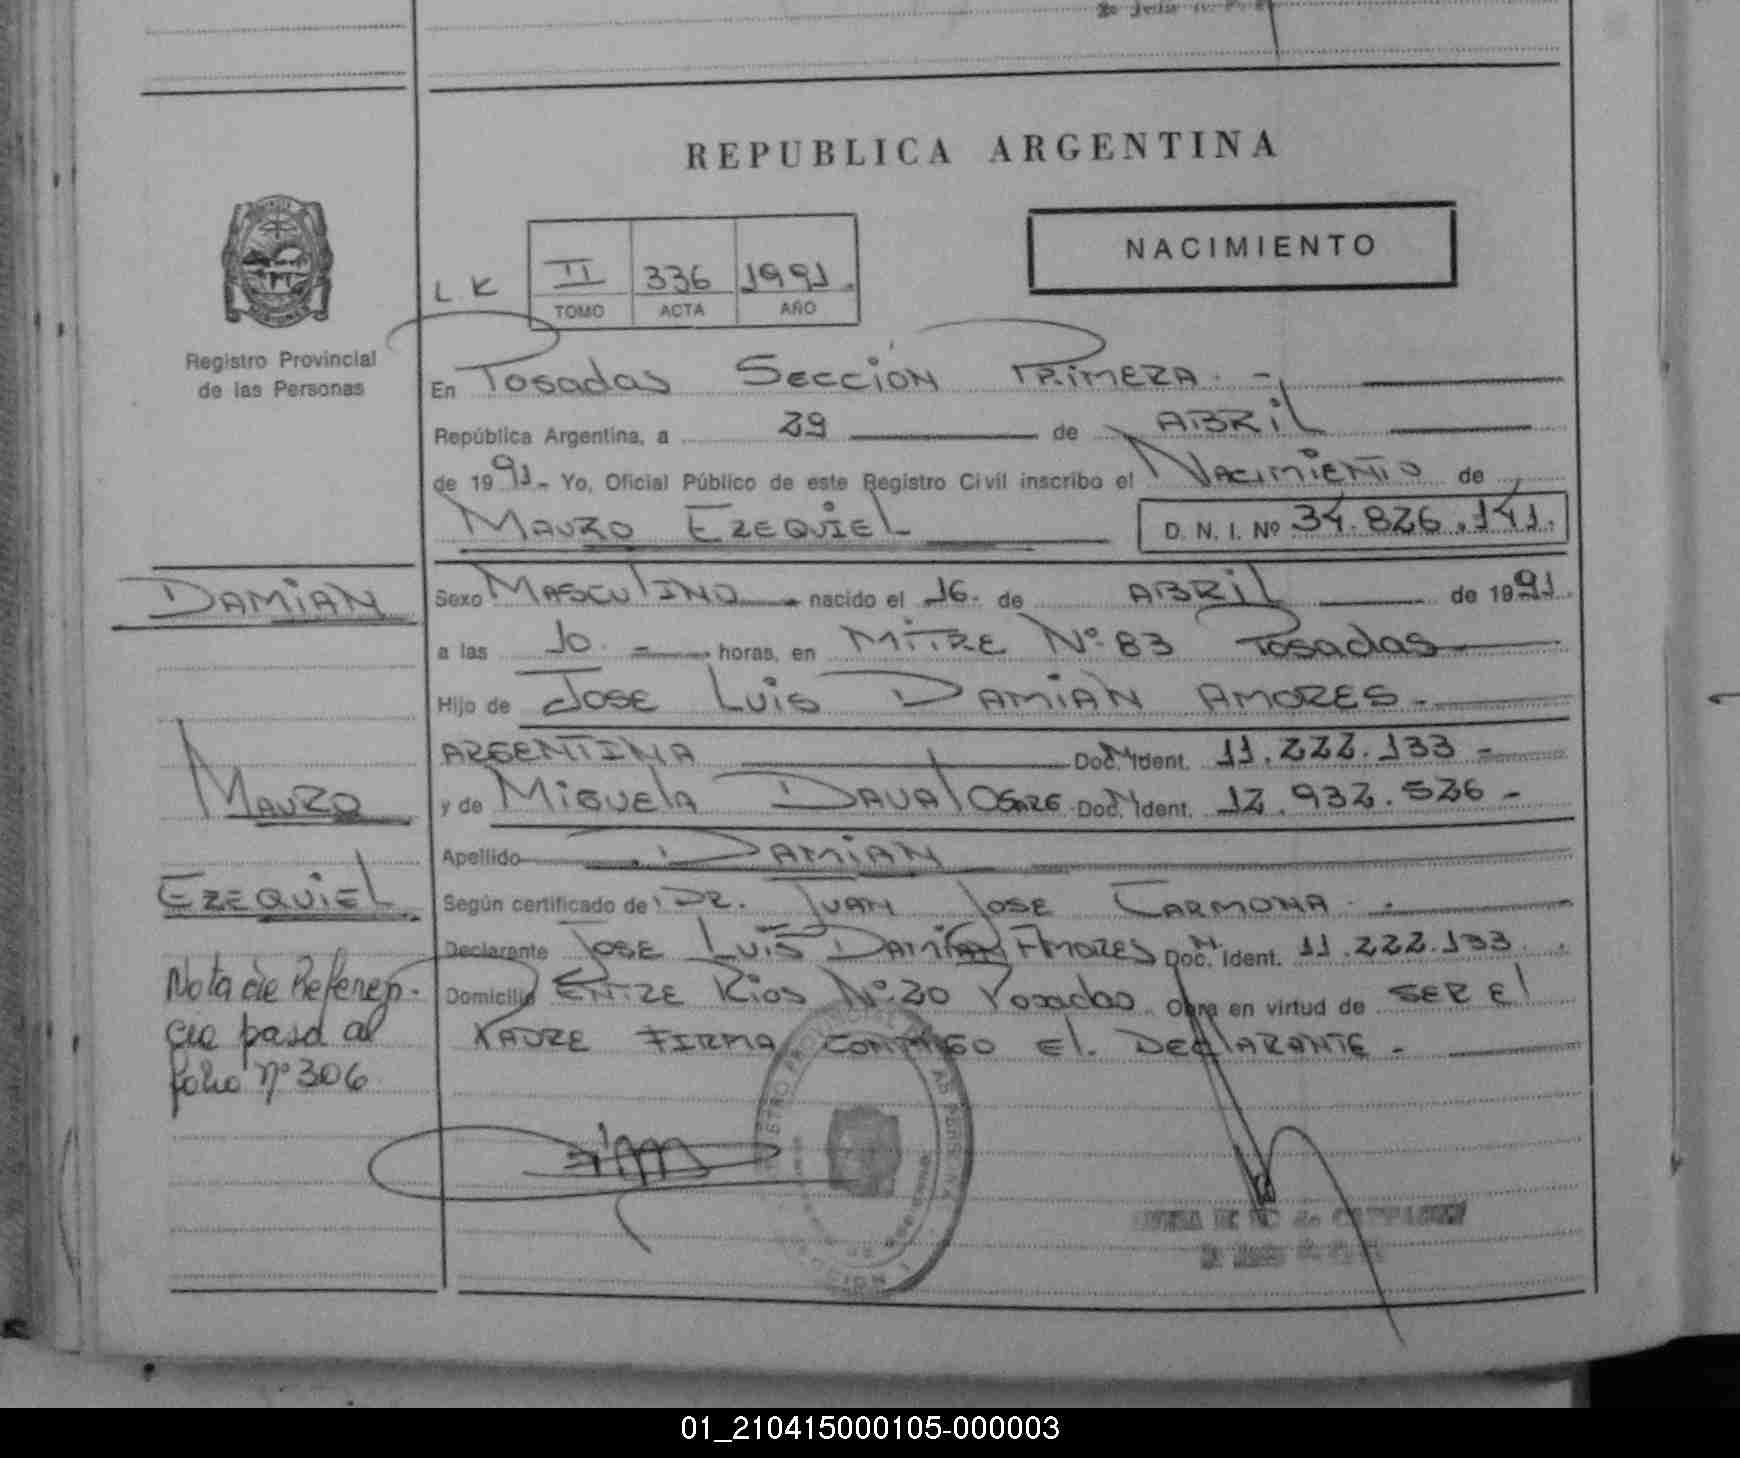 REPUBLICA ARGENTINA
NACIMIENTO
L K
II 336 1991.
TOMO ACTA AÑO
Registro Provincial
de las Personas
En Posadas Sección Primera. -
República Argentina, a 29 de ABRil
de 1991- Yo, Oficial Público de este Registro Civil inscribo el Nacimiento de
Mauro Ezequiel D. N. I. Nº 34.826.141.
DAMIAN
Sexo Masculino nacido el 16. de ABRil de 1991.
a las 10. horas, en Mitre Nº 83 Posadas
Hijo de Jose Luis Damian Amores.
ARGENTINA Doc. Ident. 11.222.133 -
Mauro
y de Miguela Davalos Doc. Ident. 12.932.526 -
Apellido DAMIAN
Ezequiel
Según certificado de Dr. Juan Jose Carmona.
Declarante Jose Luis Damian Amores Doc. Ident. 11.222.133.
Domicilio Entre Rios Nº 20 Posadas Obra en virtud de ser el
Padre Firma conmigo el. Declarante -
Nota de Referen-
cia pasa al
folio nº 306
01_210415000105-000003